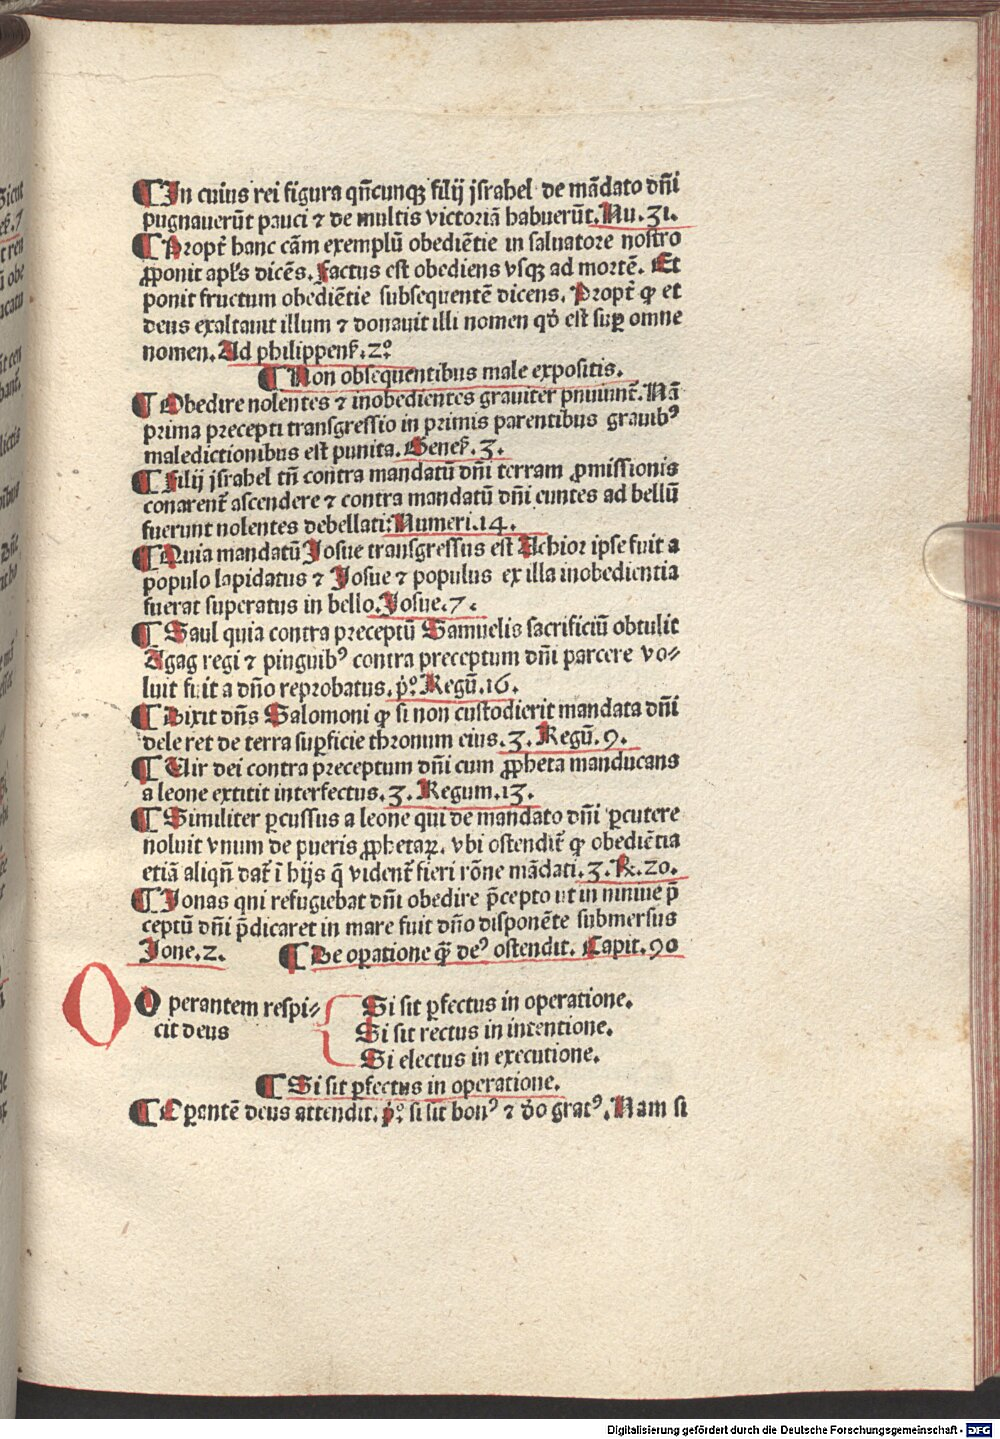 ¶ In cuius rei figura qn̄cunqꝫ filij jsrahel de mādato dn̄i
pugnauerūt pauci ⁊ de multis victoriā habuerūt. Nu. 31.
¶ Propt̄ hanc cām exemplū obediētie in saluatore nostro
ꝓponit apl̄s dicēs. Factus est obediens vsqꝫ ad mortē. Et
ponit fructum obediētie subsequentē dicens. Propt̄ ꝙ et
deus exaltauit illum ⁊ donauit illi nomen qd̄ est suꝑ omne
nomen. Ad philippenẜ. 2º
¶ Non obsequentibus male expositis.
¶ Obedire nolentes ⁊ inobedientes grauiter pnuiunt̄. Nā
prima precepti transgressio in primis parentibus grauibꝰ
maledictionibus est punita. Geneẜ. 3.
¶ Filij jsrahel tn̄ contra mandatū dn̄i terram ꝓmissionis
conarent̄ ascendere ⁊ contra mandatū dn̄i euntes ad bellū
fuerunt nolentes debellati: Numeri. 14.
¶ Quia mandatū Josue transgressus est Achior ipse fuit a
populo lapidatus ⁊ Josue ⁊ populus ex illa inobedientia
fuerat superatus in bello. Josue. 7.
¶ Saul quia contra preceptū Samuelis sacrificiū obtulit
Agag regi ⁊ pinguibꝰ contra preceptum dn̄i parcere vo⸗
luit fuit a dn̄o reprobatus. pº. Regū. 16.
¶ Dixit dn̄s Salomoni ꝙ si non custodierit mandata dn̄i
dele ret de terra suꝑficie thronum eius. 3. Regū. 9.
¶ Vir dei contra preceptum dn̄i cum ꝓpheta manducans
a leone extitit interfectus. 3. Regum. 13.
¶ Similiter ꝑcussus a leone qui de mandato dn̄i ꝑcutere
noluit vnum de pueris ꝓphetaꝝ. vbi ostendit̄ ꝙ obediētia
etiā aliqn̄ dat̄ ī hijs q̄ vident̄ fieri rōne mādati. 3. R. 20.
¶ Jonas qni refugiebat dn̄i obedire p̄cepto ut in niniue p̄
ceptū dn̄i p̄dicaret in mare fuit dn̄o disponēte submersus
Jone. 2. ¶ De oꝑatione q̄ deꝰ ostendit. Capit. 90
O O perantem respi⸗
cit deus
Si sit ꝑfectus in operatione.
Si sit rectus in intentione.
Si electus in executione.
¶ Si sit ꝑfectus in operatione.
¶ Oꝑantē deus attendit. pº. si sit bonꝰ ⁊ dō gratꝰ. Nam si
Digitalisierung gefördert durch die Deutsche Forschungsgemeinschaft - DFG